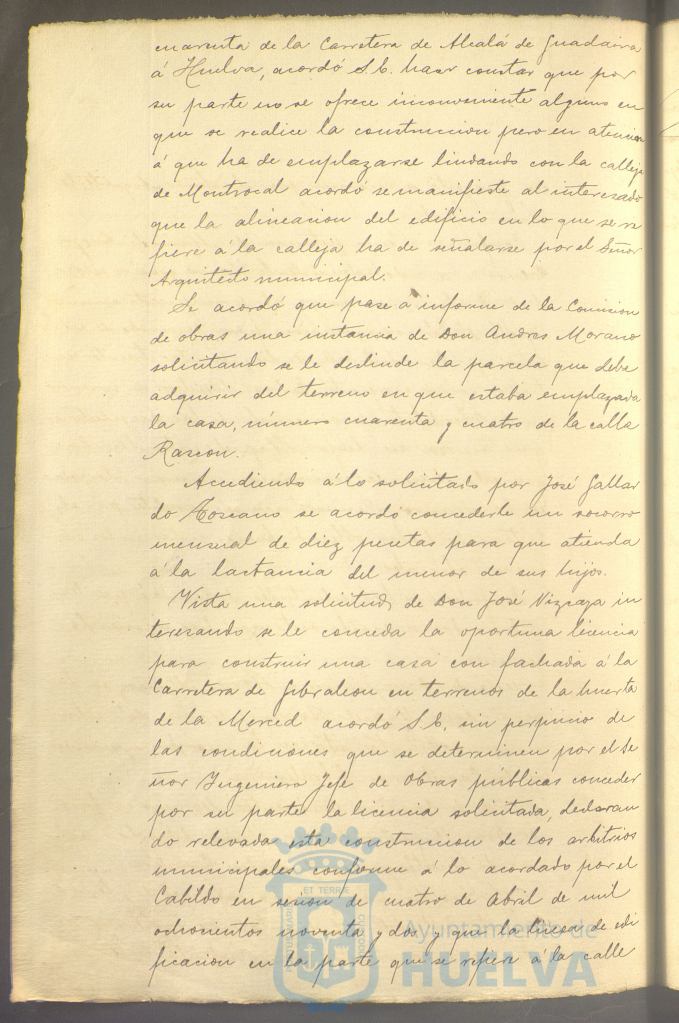 cuarenta de la Carretera de Alcalá de Guadaira
á Huelva, acordó S.E. hacer constar que por
su parte no se ofrece inconveniente alguno en
que se realice la construccion pero en atencion
á que ha de emplazarse lindando con la calleja
de Montrocal acordó se manifieste al interesado
que la alineacion del edificio en lo que se re
fiere á la calleja ha de señalarse por el Señor
Arquitecto municipal.
Se acordó que pase a informe de la Comision
de obras una instancia de Don Andres Morano
solicitando se le deslinde la parcela que debe
adquirir del terreno en que estaba emplazada
la casa, número cuarenta y cuatro de la calle
Rascon.
Accediendo á lo solicitado por José Gallar
do Toscano se acordó concederle un socorro
mensual de diez pesetas para que atienda
á la lactancia del menor de sus hijos.
Vista una solicitud de Don José Vizcaya in
teresando se le conceda la oportuna licencia
para construir una casa con fachada á la
Carretera de Gibraleon en terrenos de la huerta
de la Merced acordó S.E. sin perjuicio de
las condiciones que se determinen por el Se
ñor Ingeniero Jefe de Obras públicas conceder
por su parte la licencia solicitada, declaran
do relevada esta construccion de los arbitrios
municipales conforme á lo acordado por el
Cabildo en sesion de cuatro de Abril de mil
ochocientos noventa y dos y que la linea de edi
ficacion en la parte que se refiere á la calle
ET TERRÆ
Ayuntamiento de
HUELVA